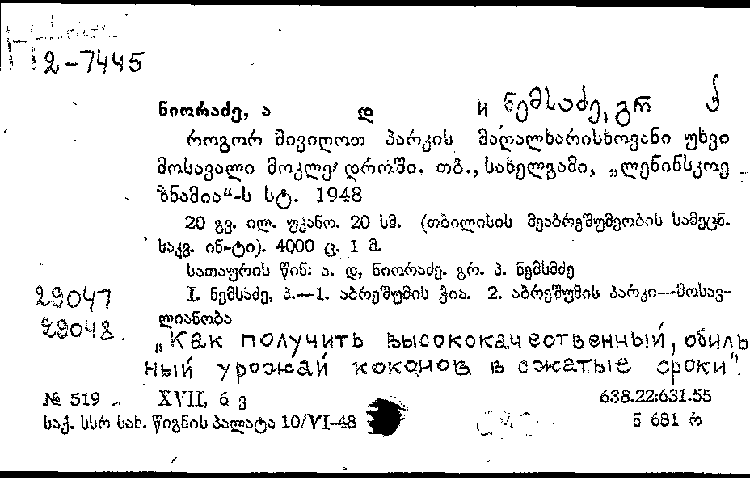 Г12-7445
ნიორაძე, ა დ и ნემსაძე, გრ პ
როგორ მივიღოთ პარკის მაღალხარისხოვანი უხვი
მოსავალი მოკლე დროში. თბ., სახელგამი, „ლენინსკოე
ზნამია“-ს სტ. 1948
20 გვ. ილ. უკანო. 20 სმ. (თბილისის მეაბრეშუმეობის სამეცნ.
საკვ. ინ-ტი). 4000 ც. 1 მ.
სათაურის წინ: ა. დ, ნიორაძე. გრ. პ. ნემსმძე
I. ნემსაძე, პ.—1. აბრეშუმის ჭია. 2. აბრეშუმის პარკი—მოსავ-
ლიანობა
29047
29048
„Как получить высококачественный, обиль
ный урожай коконов в сжатые сроки".
№ 519 XVII, 6 ვ 638.22:631.55
საქ. სსრ სახ. წიგნის პალატა 10/VI-48 ნ 681 რ